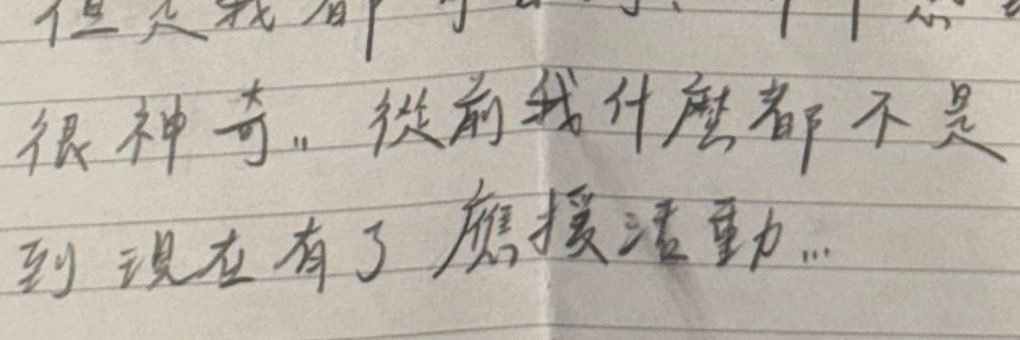 但是我都
很神奇.. 從前我什麼都不是
到現在有了應援活動...